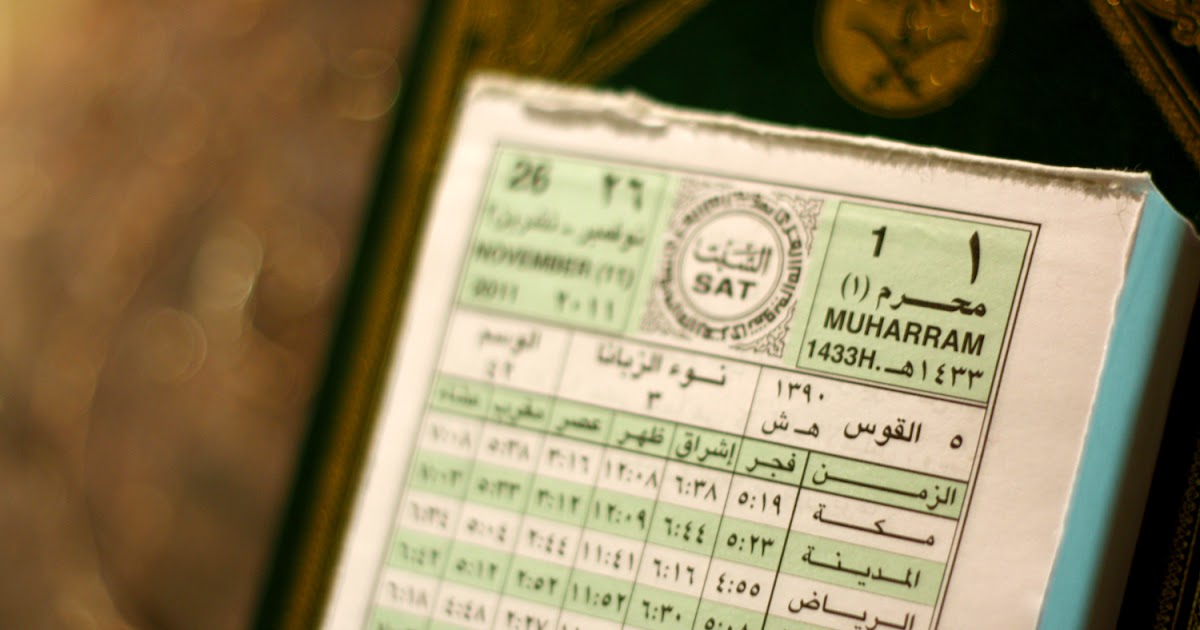 26 ٢٦
نوفمبر ـ تشرين٢
NOVEMBER (11)
2011 ٢٠١١
السَّبت
SAT
1 ١
محـــرم (١)
MUHARRAM
1433H. ١٤٣٣هـ
١٣٩٠
٥ القوس هـ ش
نـوء الزبانا
٣
الوسم
٤٢
الزمـــن فجر إشراق ظهر عصر مغرب عشاء
مـكـــة ٥:١٩ ٦:٣٨ ١٢:٠٨ ٣:١٦ ٥:٣٨ ٧:٠٨
المدينة ٥:٢٣ ٦:٤٤ ١٢:٠٩ ٣:١٢ ٥:٣٣ ٧:٠٣
الرياض ٤:٥٥ ٦:١٦ ١١:٤١ ٢:٤٤ ٥:٠٤ ٦:٣٤
٦:٣٠ ١١:٥٢ ٢:٥٢ ٥:١٢ ٦:٤٢
٤:٤٨ ٦:١٨